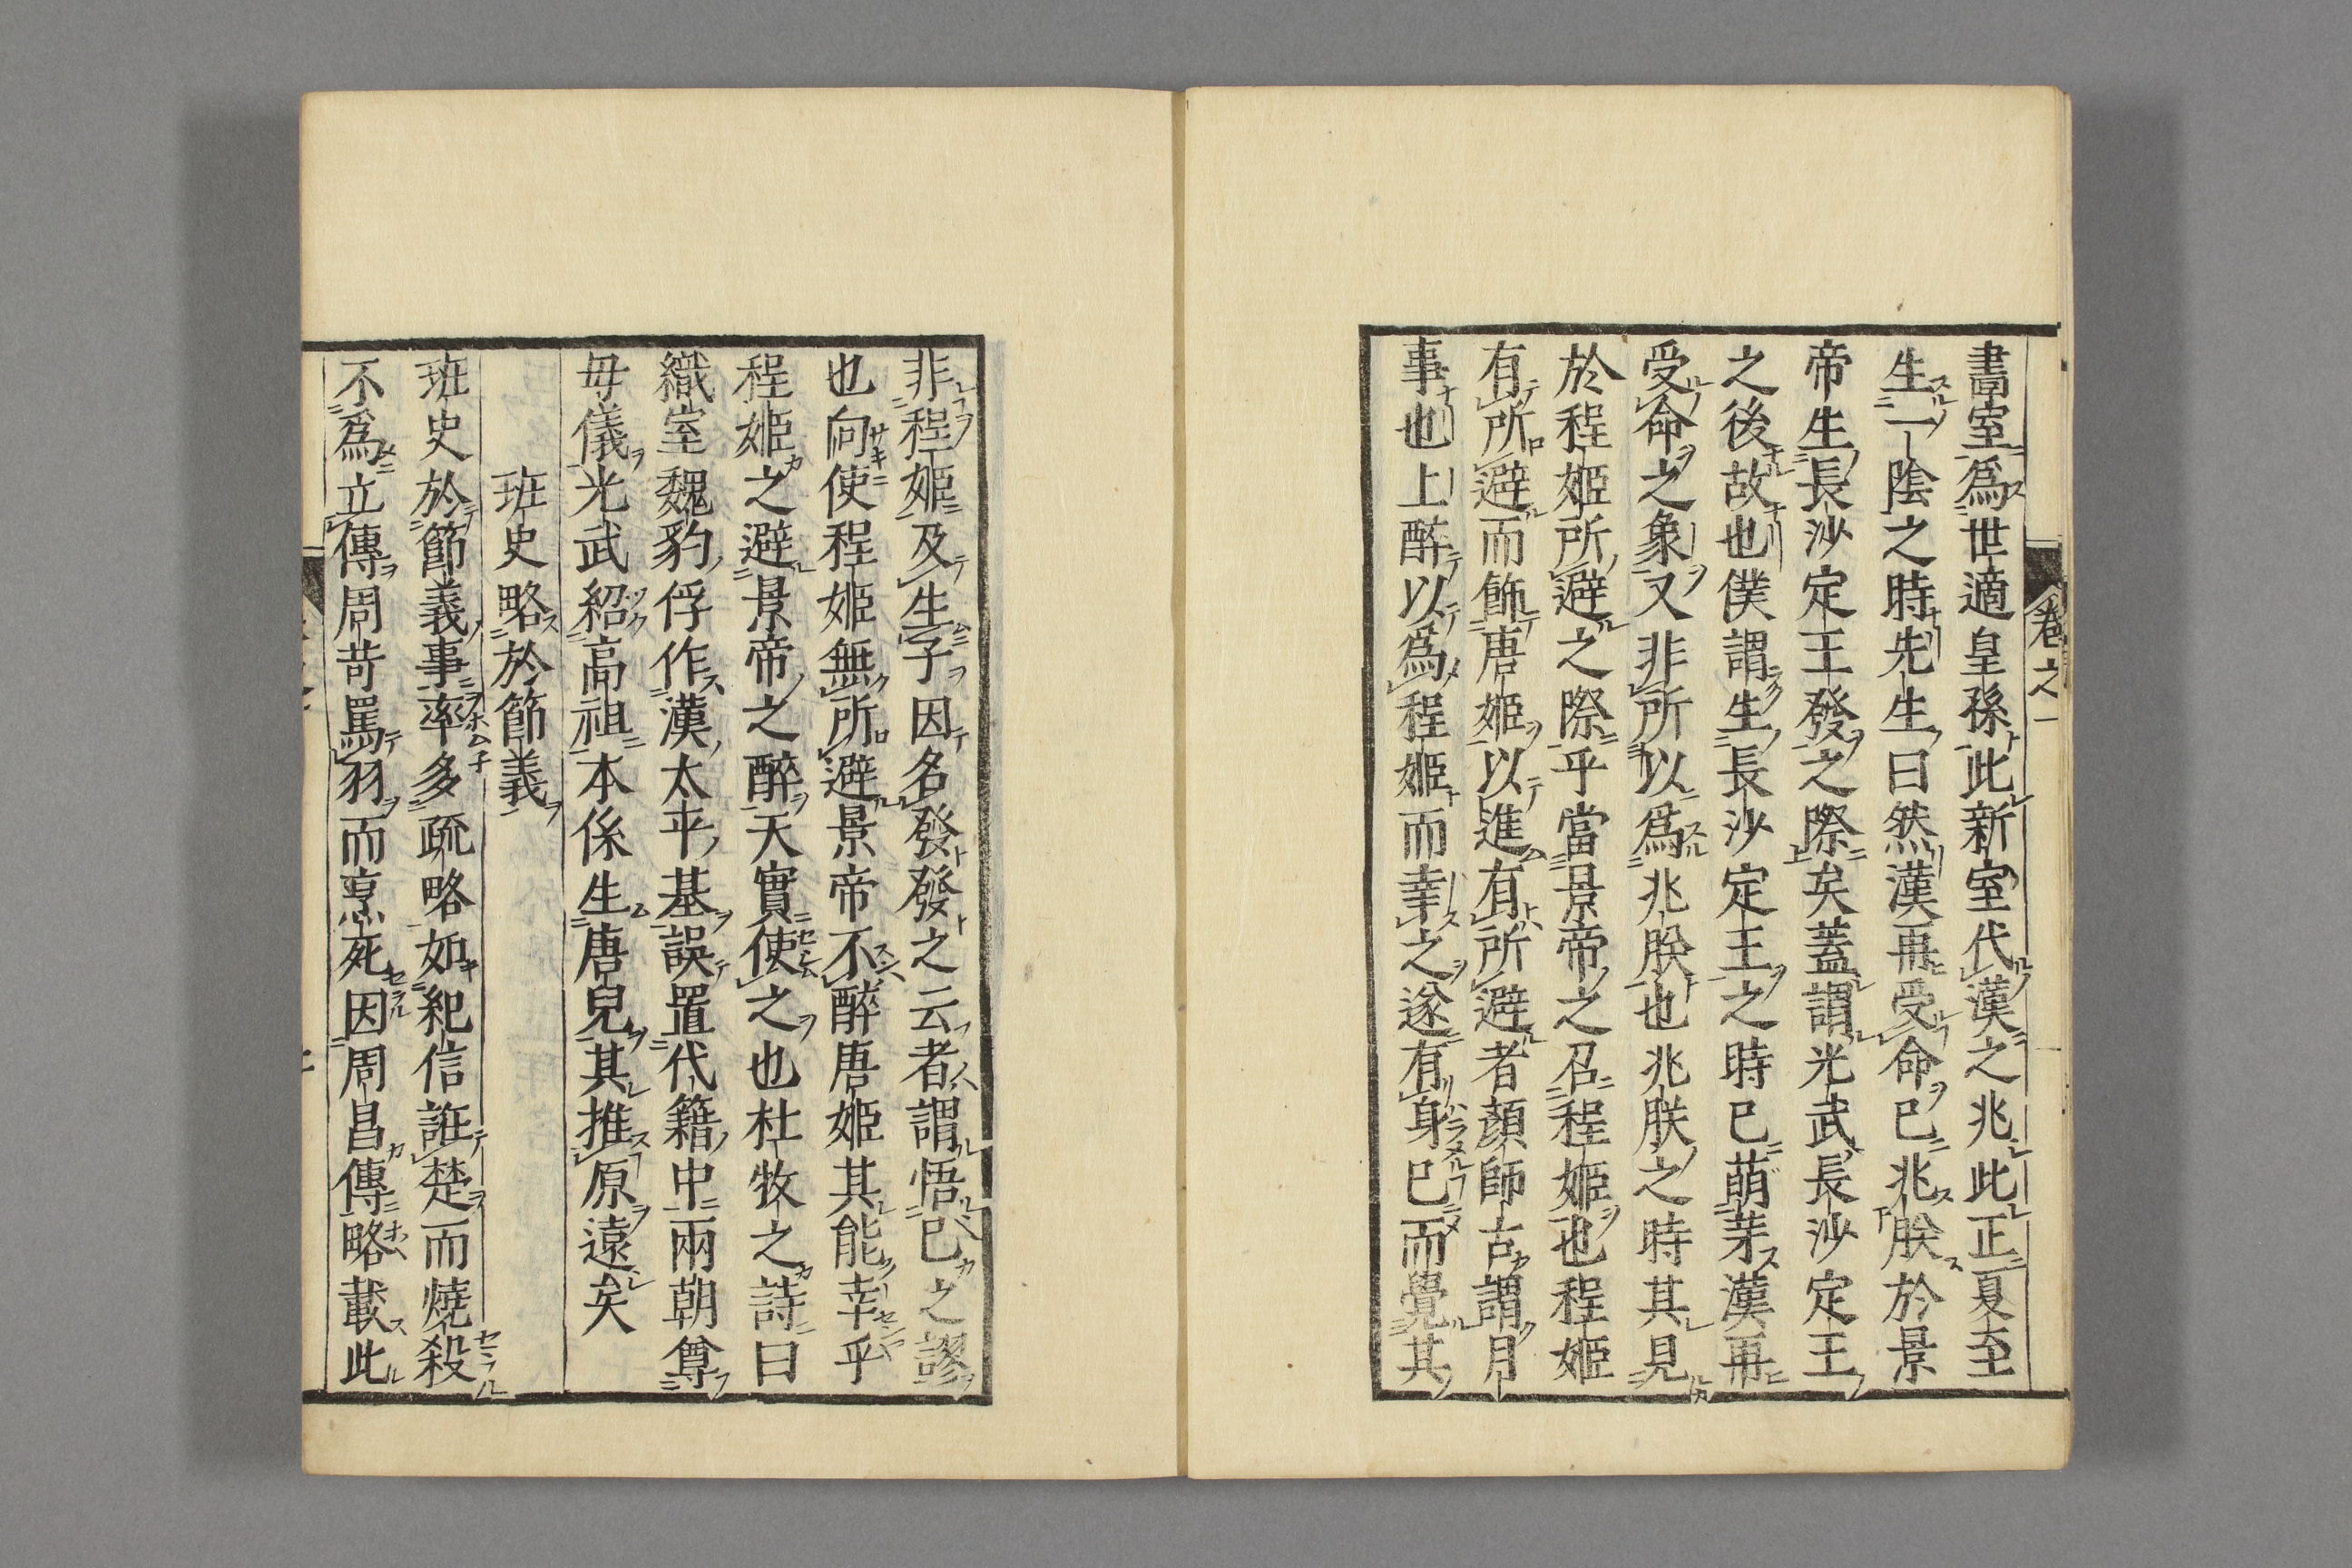 卷之一
畫室爲世適皇孫此新室代漢之兆此正夏至
生一陰之時先生曰然漢再受命已兆朕於景
帝生長沙定王發之際矣蓋謂光武長沙定王
之後故也僕謂生長沙定王之時已萌芽漢再
受命之象又非所以爲兆朕也兆朕之時其見
於程姬所避之際乎當景帝之召程姬也程姬
有所避而飾唐姬以進有所避者顏師古謂月
事也上醉以爲程姬而幸之遂有身已而覺其
非程姬及生子因名發發之云者謂悟已之謬
也向使程姬無所避景帝不醉唐姬其能幸乎
程姬之避景帝之醉天實使之也杜牧之詩曰
織室魏豹俘作漢太平基誤置代籍中兩朝尊
毋儀光武紹高祖本係生唐兒其推原遠矣
班史略於節義
班史於節義事率多疏略如紀信誑楚而燒殺
不爲立傳周苛罵羽而烹死因周昌傳略載此